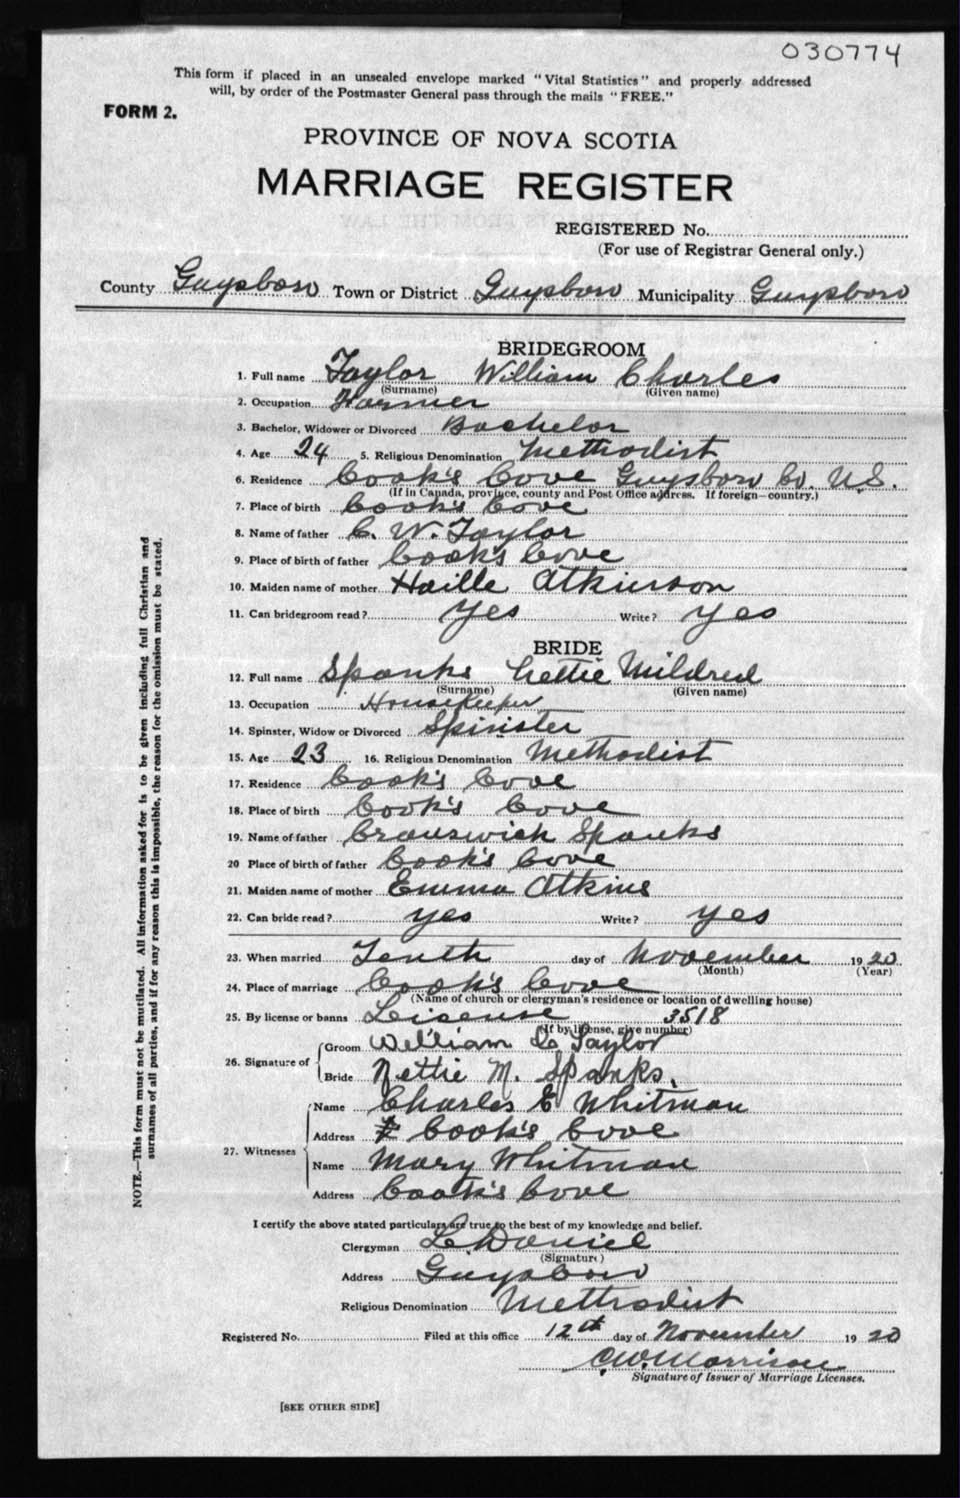 030774
This form if placed in an unsealed envelope marked "Vital Statistics" and properly addressed
will, by order of the Postmaster General pass through the mails "FREE."
FORM 2.
PROVINCE OF NOVA SCOTIA
MARRIAGE REGISTER
REGISTERED No.
(For use of Registrar General only.)
County Guysboro Town or District Guysboro Municipality Guysboro
BRIDEGROOM
1. Full name Taylor William Charles
(Surname) (Given name)
2. Occupation Farmer
3. Bachelor, Widower or Divorced Bachelor
4. Age 24 5. Religious Denomination Methodist
6. Residence Cook's Cove Guysboro Co. N.S.
(If in Canada, province, county and Post Office address. If foreign—country.)
7. Place of birth Cook's Cove
8. Name of father C. W. Taylor
9. Place of birth of father Cook's Cove
10. Maiden name of mother Atkinson
11. Can bridegroom read? Yes Write? Yes
BRIDE
12. Full name Spanks Nettie Mildred
(Surname) (Given name)
13. Occupation Housekeeper
14. Spinster, Widow or Divorced Spinster
15. Age 23 16. Religious Denomination Methodist
17. Residence Cook's Cove
18. Place of birth Cook's Cove
19. Name of father Spanks
20 Place of birth of father Cook's Cove
21. Maiden name of mother Emma Atkins
22. Can bride read? yes Write? yes
23. When married Tenth day of November 1920
(Month) (Year)
24. Place of marriage Cook's Cove
(Name of church or clergyman's residence or location of dwelling house)
25. By license or banns License 3518
(If by license, give number)
26. Signature of
Groom William C Taylor
Bride Nettie M. Spanks.
27. Witnesses
Name Charles E Whitman
Address Cook's Cove
Name Mary Whitman
Address Cook's Cove
I certify the above stated particulars are true to the best of my knowledge and belief.
Clergyman L. Daniel
(Signature)
Address Guysboro
Religious Denomination Methodist
Registered No. Filed at this office 12th day of November 1920
C.W. Morrison
Signature of Issuer of Marriage Licenses.
[SEE OTHER SIDE]
NOTE.—This form must not be mutilated. All information asked for is to be given including full Christian and
surnames of all parties, and if for any reason this is impossible, the reason for the omission must be stated.